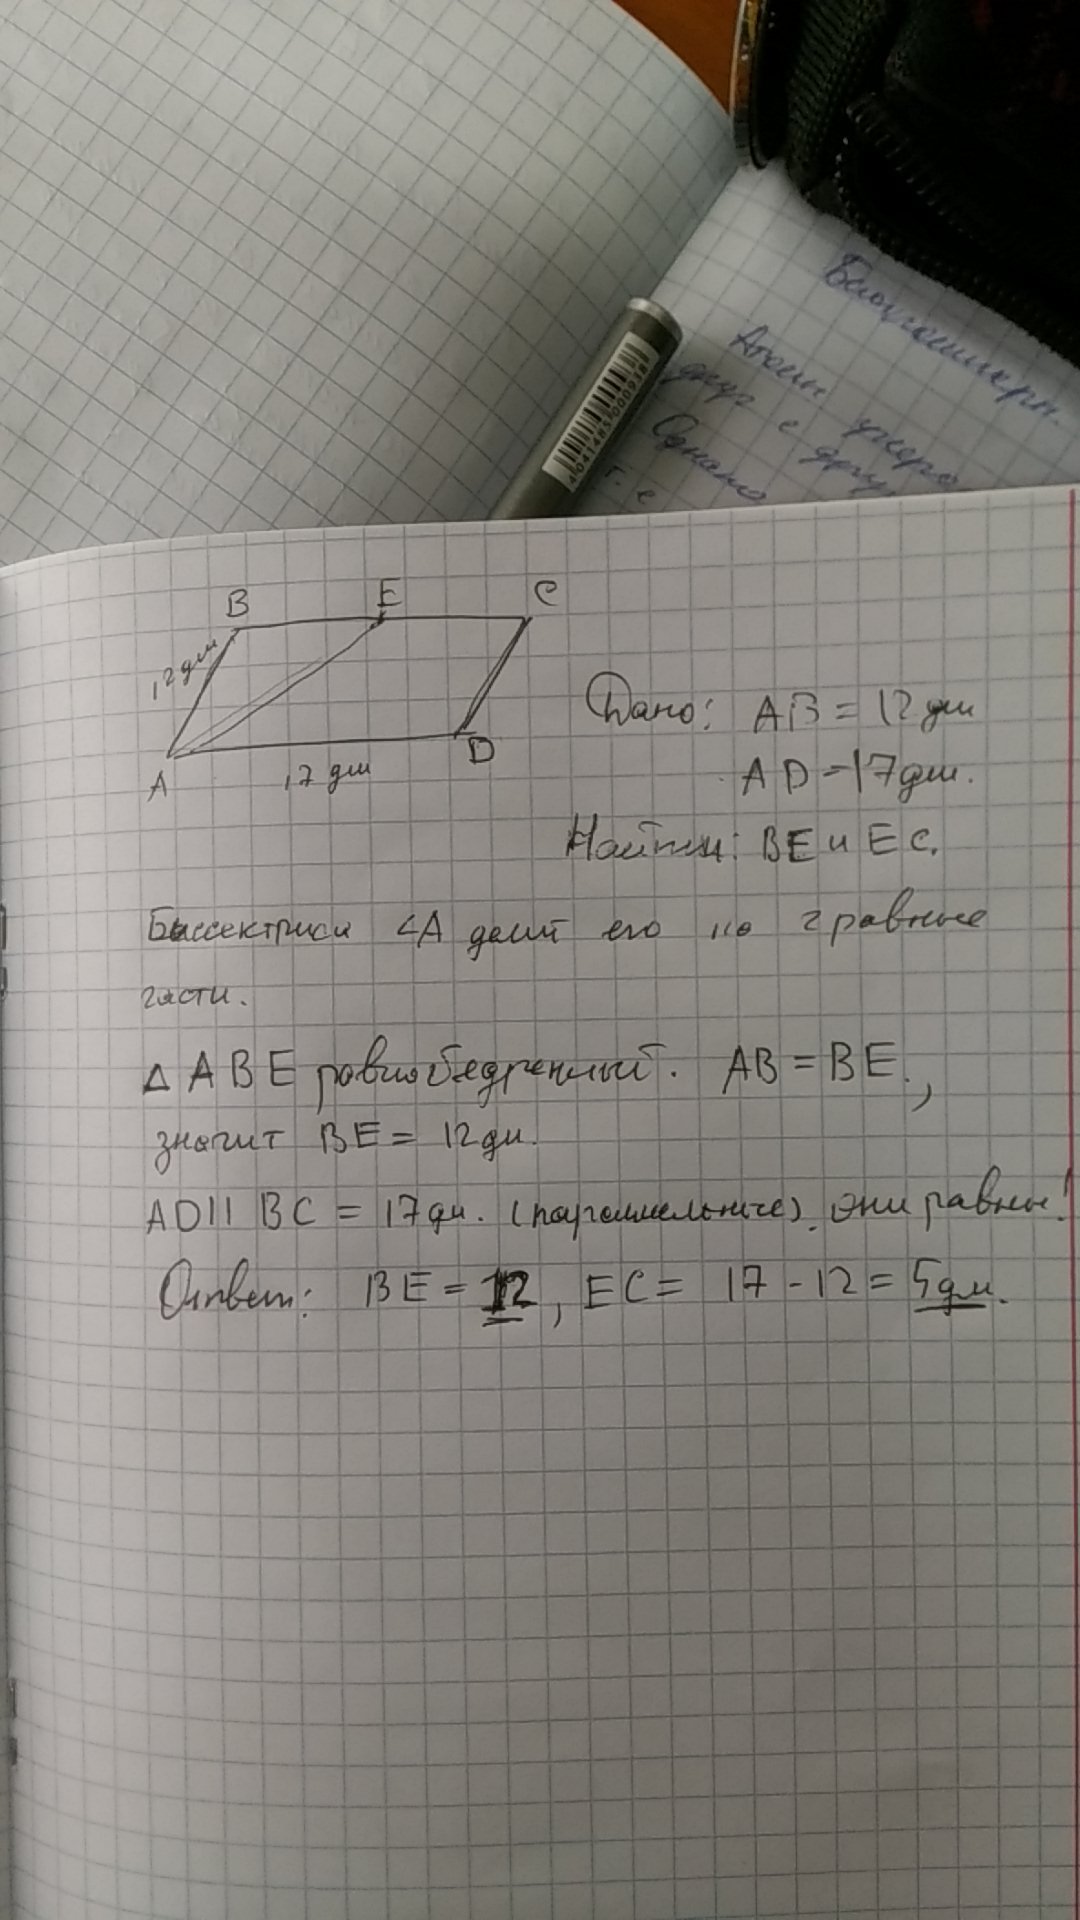 Атомы углеро
друг с друг
Однако
т. е
4 041485 000928
B E C
12 дм
A 17 дм D
Дано: AB = 12 дм
AD = 17 дм.
Найти: BE и EC.
Биссектриса ∠A делит его на 2 равные
части.
Δ ABE равнобедренный. AB = BE.,
значит BE = 12 дм.
AD || BC = 17 дм. (параллельные). Они равны!
Ответ: BE = 12, EC = 17 - 12 = 5 дм.